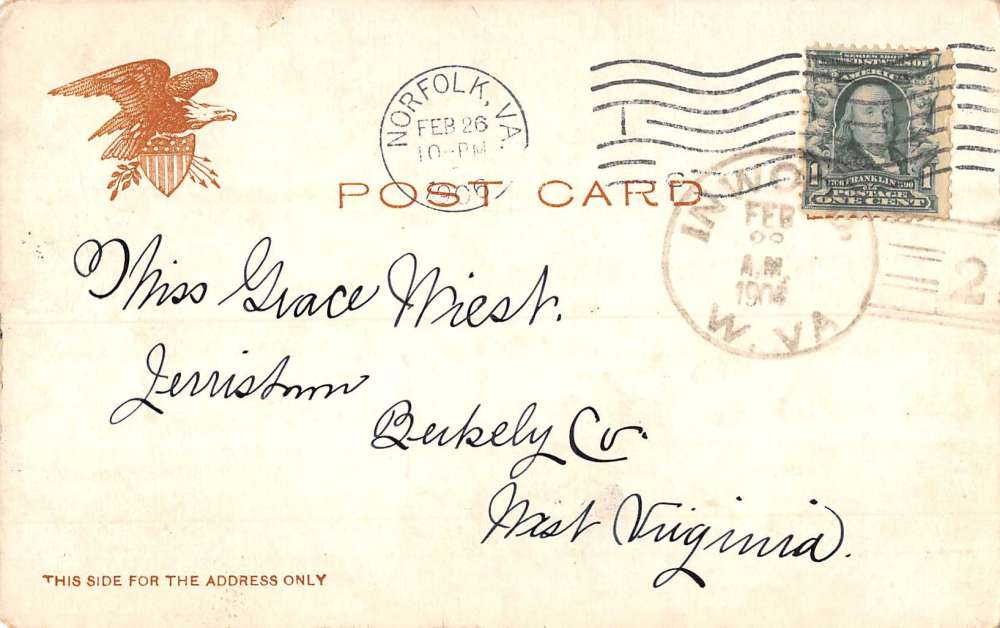 NORFOLK, VA.
FEB 26
10-PM
1906
1
SERIES 1902
UNITED STATES OF
AMERICA
1706 FRANKLIN 1790
POSTAGE
ONE CENT
POST CARD
INWOOD,
FEB
A.M.
W. VA
2
Miss Grace Wiest.
Jerristown
Berkely Co.
West Virginia.
THIS SIDE FOR THE ADDRESS ONLY